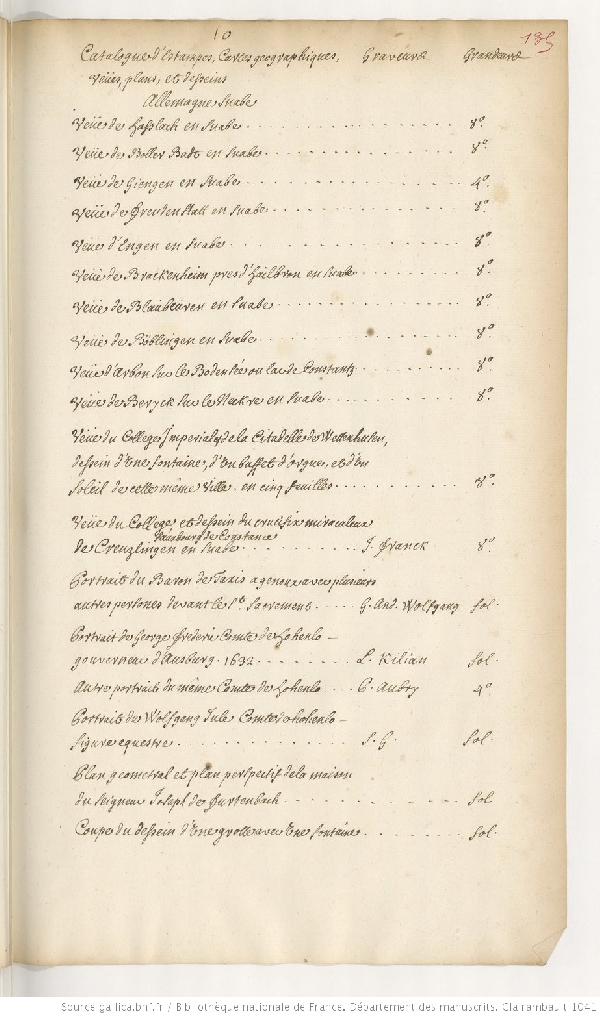 10
185
Catalogue d'Estampes, Cartes geographiques, Graveurs Grandeurs
Veües, plans, et desseins
Allemagne Suabe
Veüe de Hasslach en Suabe 8°
Veüe de Boller Badt en Suabe 8°
Veüe de Giengen en Suabe 4°
Veüe de Freudenstatt en Suabe 8°
Veüe d'Engen en Suabe 8°
Veüe de Brackenheim pres d'Hailbron en Suabe 8°
Veüe de Blaubeuren en Suabe 8°
Veüe de Böblingen en Suabe 8°
Veüe d'Arbon sur le Boden sée ou lac de Constantz 8°
Veüe de Beryck sur le Neckre en Suabe 8°
Veüe du College Imperial et de la Citadelle de Wettenhusen,
dessein d'Une fontaine, d'Un buffet d'orgue, et d'un
Soleil de cette même Ville en cinq feuilles 8°
Veüe du College et dessein du crucifix miraculeux
fauxbourg de Constance
de Creuzlingen en Suabe J. Franck 8°
Portrait du Baron de Taxis a genoux avec plusieurs
autres persones devant le St. Sacrement G. And. Wolfgang fol.
Portrait de George Frederic Comte de Hohenlo
gouverneur d'Ausburg. 1632 L. Kilian fol.
Autre portrait du même Comte de Hohenlo P. Aubry 4°
Portrait de Wolfgang Jule Comte de Hohenlo
figure equestre S. G. fol.
Plan geometral et plan perspectif de la maison
du Seigneur Joseph de Furtenbach fol
Coupe du dessein d'Une grotte avec Une fontaine fol.
Source gallica.bnf.fr / Bibliothèque nationale de France. Département des manuscrits. Clairambault 1041